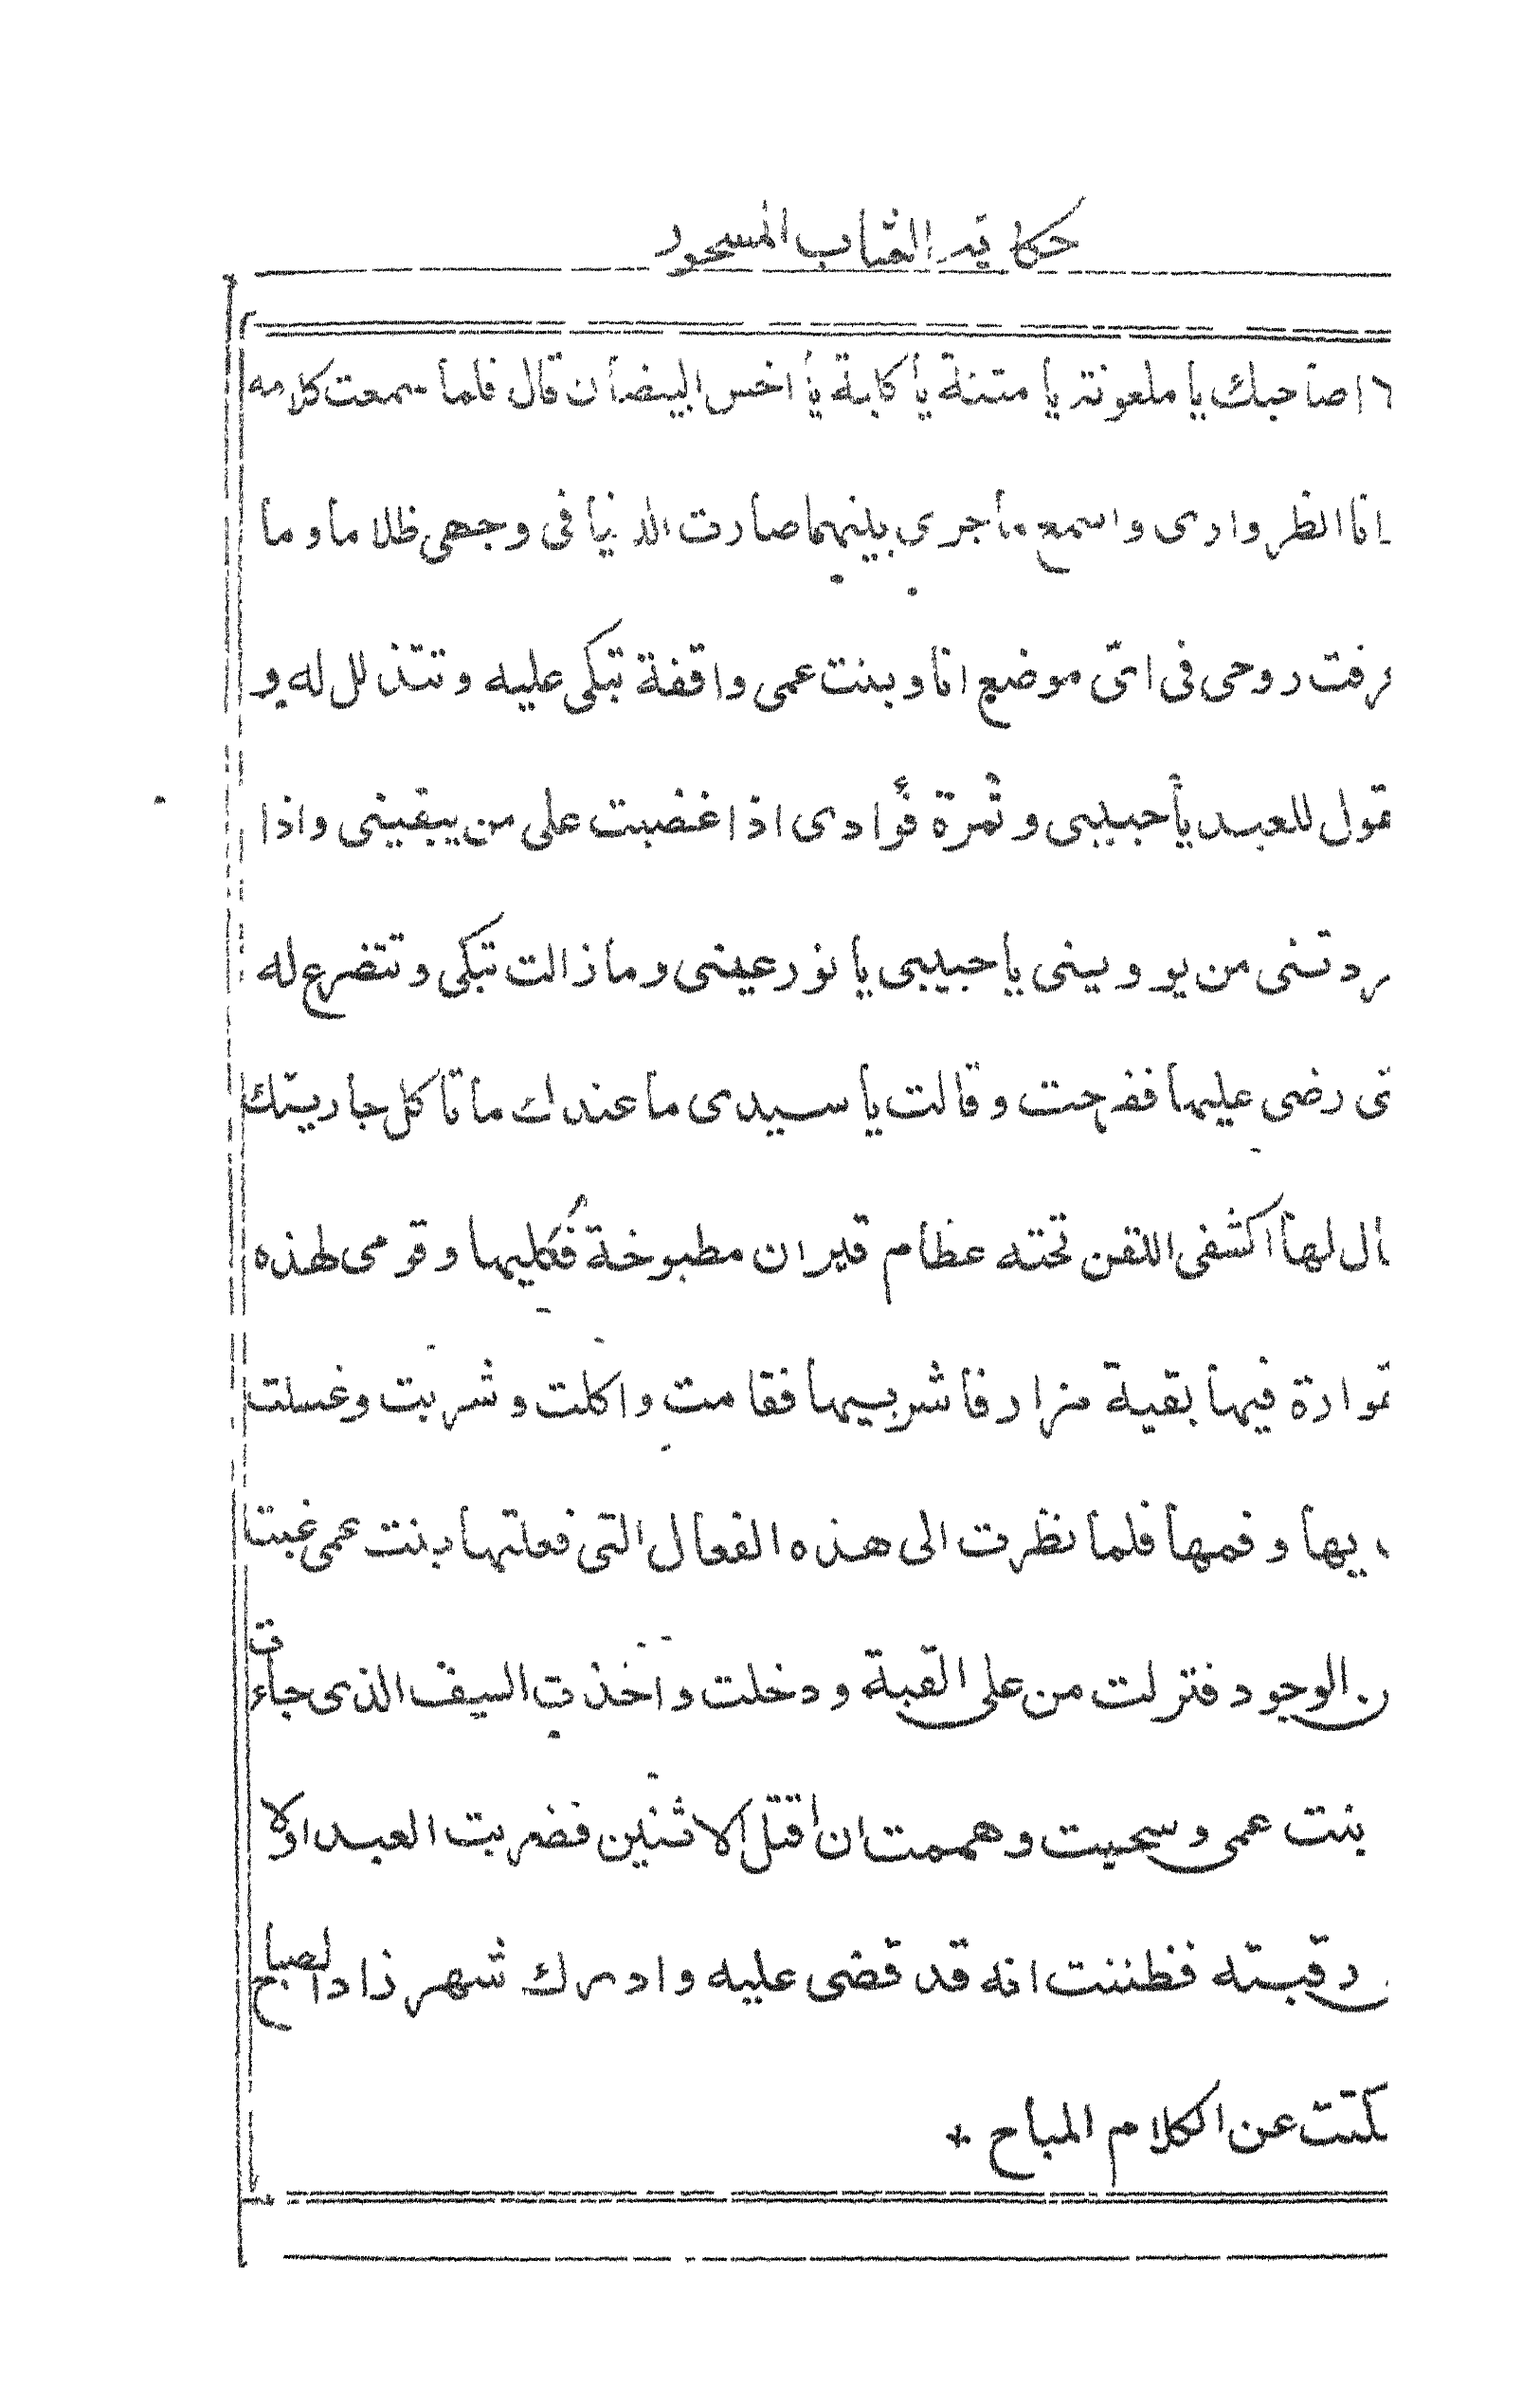 حكاية الشاب المسحور
لا اصاحبك يا ملعونة يا منتنة يا كلبة يا اخس البيضان قال فلما سمعت كلامه
وانا انظر وارى واسمع ما جرى بينهما صارت الدنيا فى وجهى ظلاما وما
عرفت روحى فى اىّ موضع انا وبنت عمى واقفة تبكى عليه وتتذلل له و
تقول للعبد يا حبيبى وثمرة فؤادى اذا غضبت على من يبقينى واذا
طردتنى من يوويينى يا حبيبى يا نور عينى وما زالت تبكى وتتضرع له
حتى رضى عليها ففرحت وقالت يا سيدى ما عندك ما تاكل جاريتك
قال لها اكشفى اللقن تحته عظام فيران مطبوخة فكليها وقومى لهذه
القوارة فيها بقية مزار فاشربيها فقامت واكلت وشربت وغسلت
يديها وفمها فلما نظرت الى هذه الفعال التى فعلتها بنت عمى غبت
عن الوجود فنزلت من على القبة ودخلت واخذت السيف الذى جاءت
بنت عمى وسحبت وهممت ان اقتل الاثنين فضربت العبد اولا
رقبته فظننت انه قد قضى عليه وادرك شهرزاد الصباح
فسكتت عن الكلام المباح +